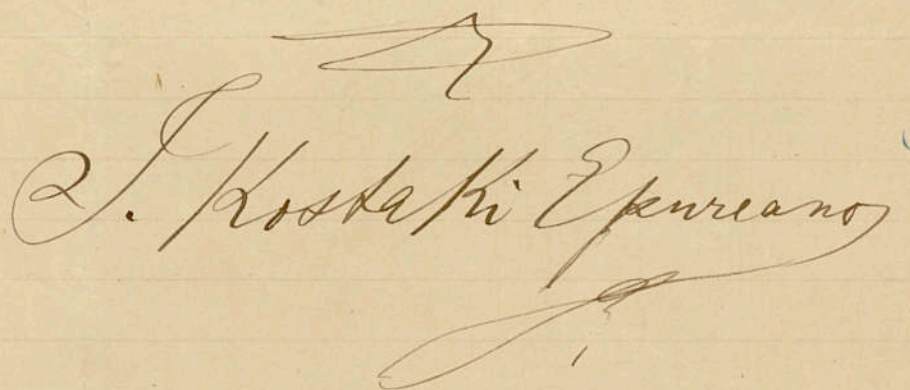 I. Kostaki Epureano